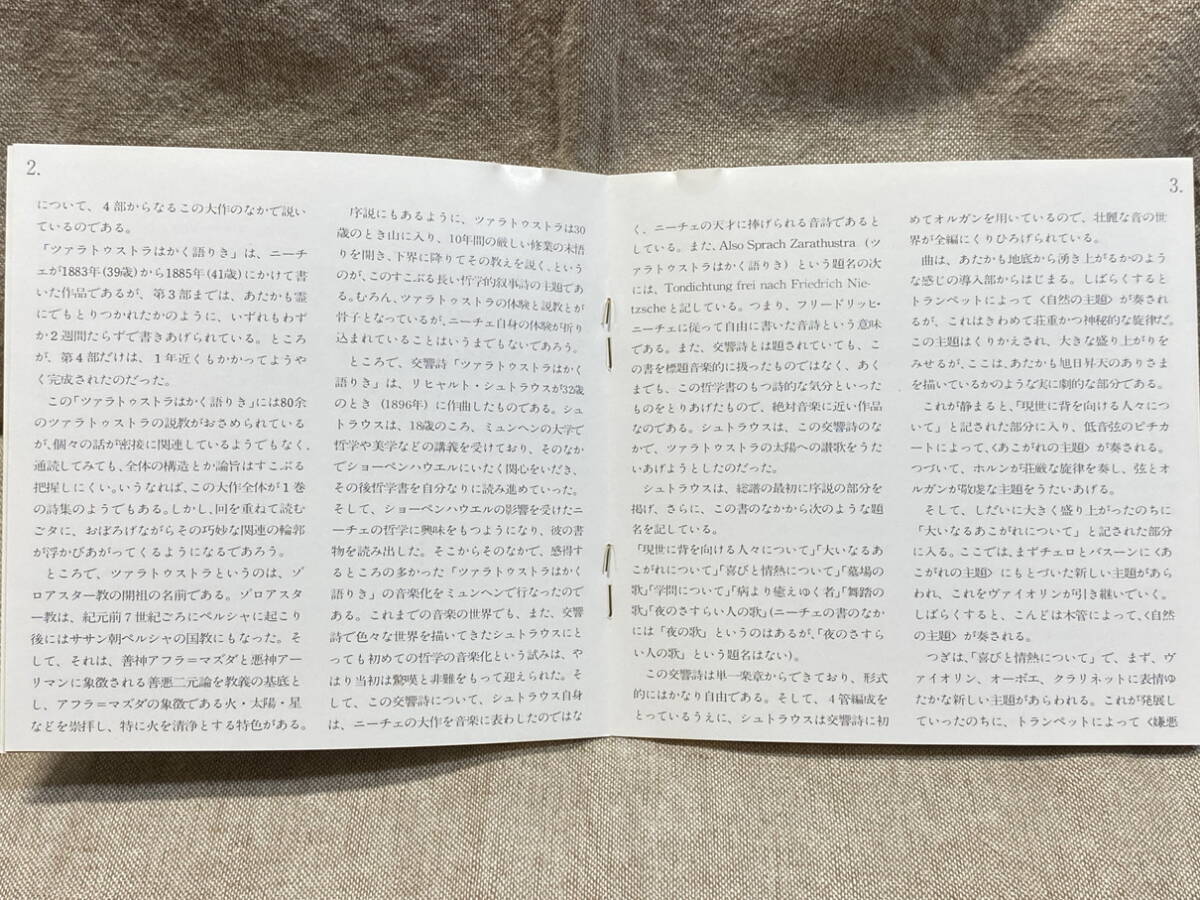 2.
について、4部からなるこの大作のなかで説い
ているのである。
「ツァラトゥストラはかく語りき」は、ニーチ
ェが1883年(39歳)から1885年(41歳)にかけて書
いた作品であるが、第3部までは、あたかも霊
にでもとりつかれたかのように、いずれもわず
か2週間たらずで書きあげられている。ところ
が、第4部だけは、1年近くもかかってようや
く完成されたのだった。
この「ツァラトゥストラはかく語りき」には80余
のツァラトゥストラの説教がおさめられている
が、個々の話が密接に関連しているようでもなく、
通読してみても、全体の構造とか論旨はすこぶる
把握しにくい。いうなれば、この大作全体が1巻
の詩集のようでもある。しかし、回を重ねて読む
ごタに、おぼろげながらその巧妙な関連の輪郭
が浮かびあがってくるようになるであろう。
ところで、ツァラトゥストラというのは、ゾ
ロアスター教の開祖の名前である。ゾロアスタ
ー教は、紀元前7世紀ごろにペルシャに起こり
後にはササン朝ペルシャの国教にもなった。そ
して、それは、善神アフラ＝マズダと悪神アー
リマンに象徴される善悪二元論を教義の基底と
し、アフラ＝マズダの象徴である火・太陽・星
などを崇拝し、特に火を清浄とする特色がある。
序説にもあるように、ツァラトゥストラは30
歳のとき山に入り、10年間の厳しい修業の末悟
りを開き、下界に降りてその教えを説く、という
のが、このすこぶる長い哲学的叙事詩の主題であ
る。むろん、ツァラトゥストラの体験と説教とが
骨子となっているが、ニーチェ自身の体験が折り
込まれていることはいうまでもないであろう。
ところで、交響詩「ツァラトゥストラはかく
語りき」は、リヒャルト・シュトラウスが32歳
のとき(1896年)に作曲したものである。シュ
トラウスは、18歳のころ、ミュンヘンの大学で
哲学や美学などの講義を受けており、そのなか
でショーペンハウエルにいたく関心をいだき、
その後哲学書を自分なりに読み進めていった。
そして、ショーペンハウエルの影響を受けたニ
ーチェの哲学に興味をもつようになり、彼の書
物を読み出した。そこからそのなかで、感得す
るところの多かった「ツァラトゥストラはかく
語りき」の音楽化をミュンヘンで行なったので
ある。これまでの音楽の世界でも、また、交響
詩で色々な世界を描いてきたシュトラウスにと
っても初めての哲学の音楽化という試みは、や
はり当初は驚嘆と非難をもって迎えられた。そ
して、この交響詩について、シュトラウス自身
は、ニーチェの大作を音楽に表わしたのではな
3.
く、ニーチェの天才に捧げられる音詩であると
している。また、Also Sprach Zarathustra(ツ
ァラトゥストラはかく語りき)という題名の次
には、Tondichtung frei nach Friedrich Nie-
tzscheと記している。つまり、フリードリッヒ・
ニーチェに従って自由に書いた音詩という意味
である。また、交響詩とは題されていても、こ
の書を標題音楽的に扱ったものではなく、あく
までも、この哲学書のもつ詩的な気分といった
ものをとりあげたもので、絶対音楽に近い作品
なのである。シュトラウスは、この交響詩のな
かで、ツァラトゥストラの太陽への讃歌をうた
いあげようとしたのだった。
シュトラウスは、総譜の最初に序説の部分を
掲げ、さらに、この書のなかから次のような題
名を記している。
「現世に背を向ける人々について」「大いなるあ
こがれについて」「喜びと情熱について」「墓場の
歌」「学問について」「病より癒えゆく者」「舞踏の
歌」「夜のさすらい人の歌」(ニーチェの書のなか
には「夜の歌」というのはあるが、「夜のさすら
い人の歌」という題名はない)。
この交響詩は単一楽章からできており、形式
的にはかなり自由である。そして、4管編成を
とっているうえに、シュトラウスは交響詩に初
めてオルガンを用いているので、壮麗な音の世
界が全編にくりひろげられている。
曲は、あたかも地底から湧き上がるかのよう
な感じの導入部からはじまる。しばらくすると
トランペットによって〈自然の主題〉が奏され
るが、これはきわめて荘重かつ神秘的な旋律だ。
この主題はくりかえされ、大きな盛り上がりを
みせるが、ここは、あたかも旭日昇天のありさま
を描いているかのような実に劇的な部分である。
これが静まると、「現世に背を向ける人々につ
いて」と記された部分に入り、低音弦のピチカ
ートによって、〈あこがれの主題〉が奏される。
つづいて、ホルンが荘厳な旋律を奏し、弦とオ
ルガンが敬虔な主題をうたいあげる。
そして、しだいに大きく盛り上がったのちに
「大いなるあこがれについて」と記された部分
に入る。ここでは、まずチェロとバスーンに〈あ
こがれの主題〉にもとづいた新しい主題があら
われ、これをヴァイオリンが引き継いでいく。
しばらくすると、こんどは木管によって、〈自然
の主題〉が奏される。
つぎは、「喜びと情熱について」で、まず、ヴ
ァイオリン、オーボエ、クラリネットに表情ゆ
たかな新しい主題があらわれる。これが発展し
ていったのちに、トランペットによって〈嫌悪